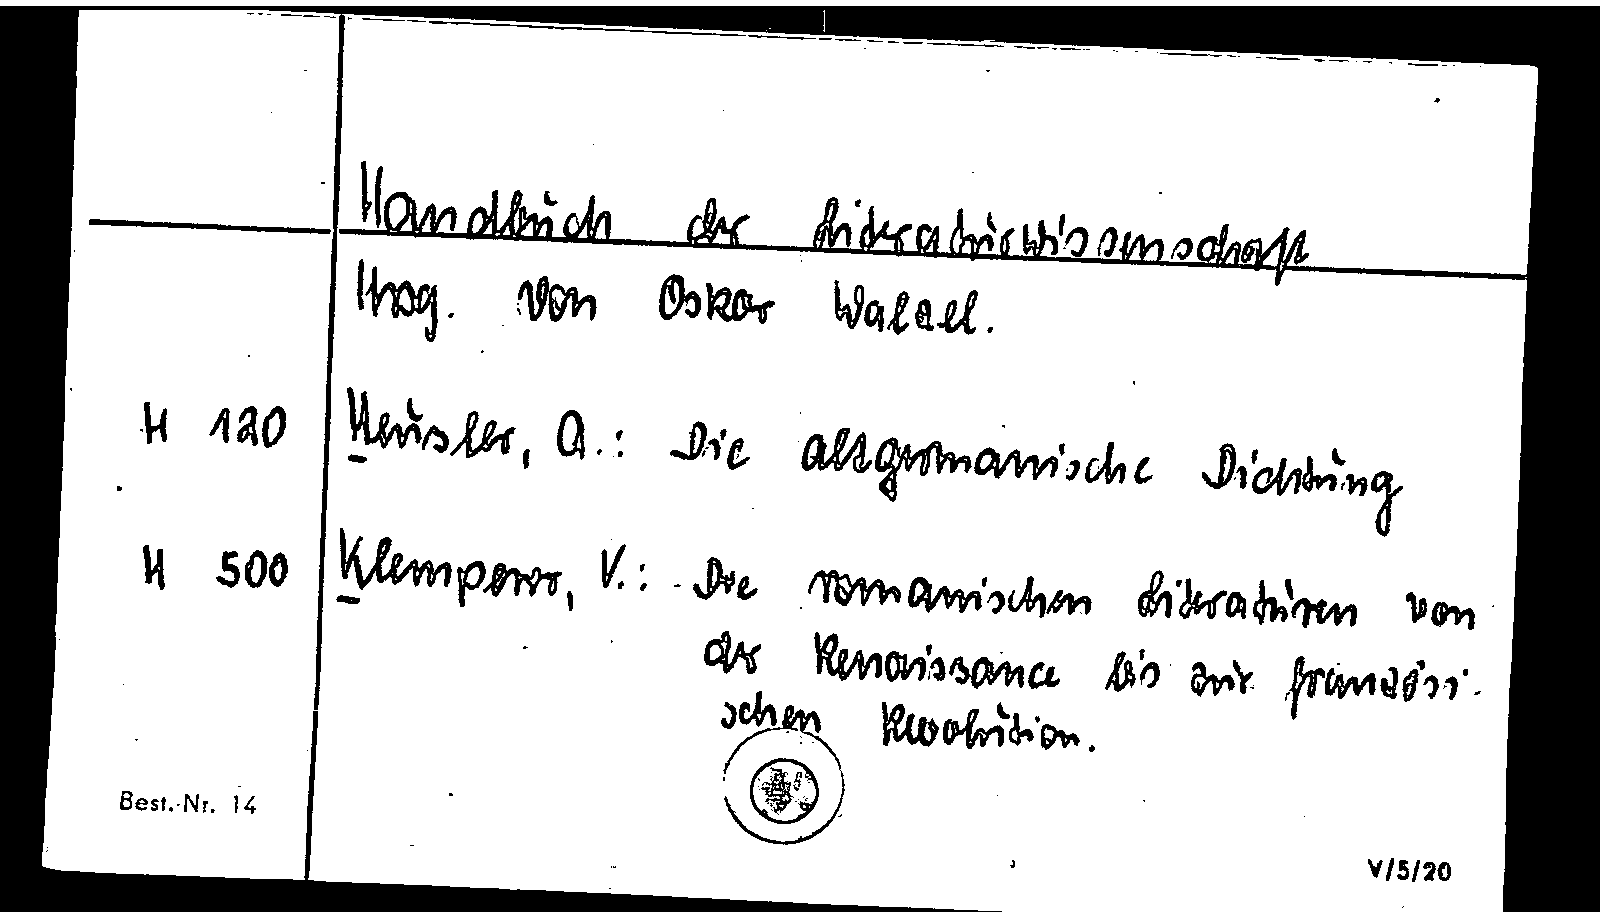 Handbuch der Literaturwissenschaft
Hrsg. von Oskar Walzel.
H 120 Heusler, A.: Die altgermanische Dichtung
H 500 Klemperer, V.: Die romanischen Literaturen von
der Renaissance bis zur französi-
schen Revolution.
Best.-Nr. 14
V/5/20